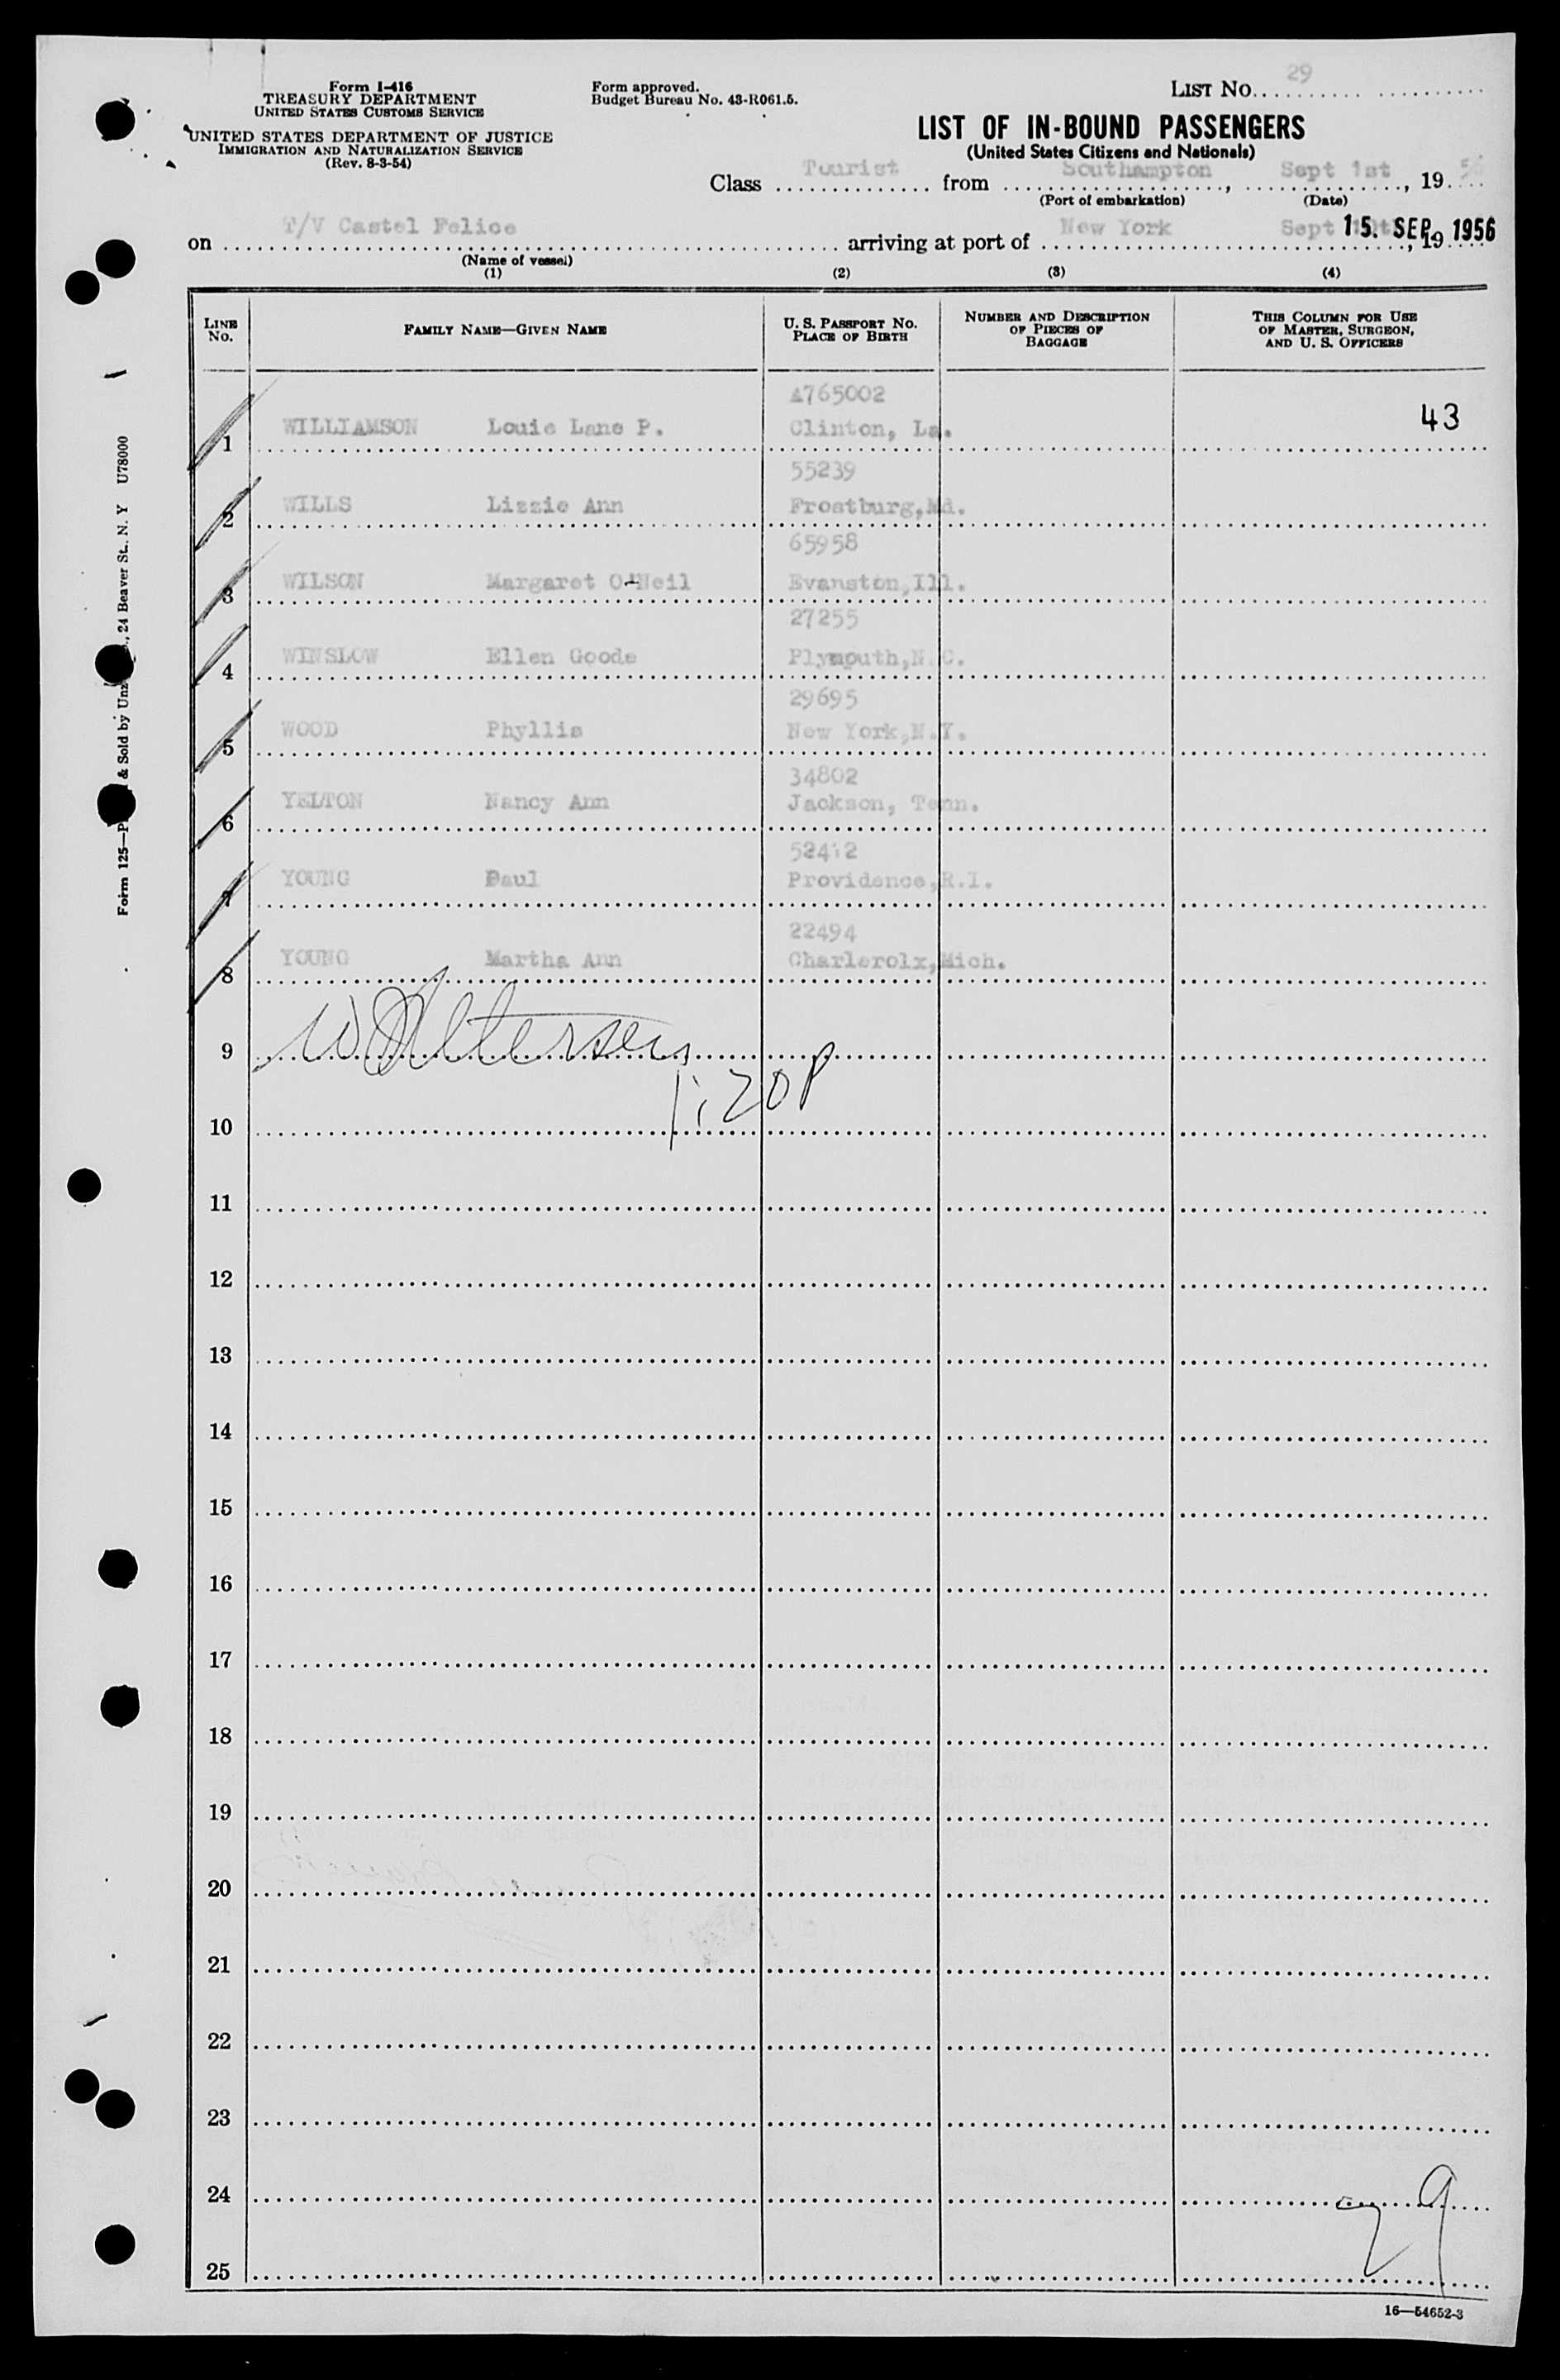 Form I-416
TREASURY DEPARTMENT
UNITED STATES CUSTOMS SERVICE
UNITED STATES DEPARTMENT OF JUSTICE
IMMIGRATION AND NATURALIZATION SERVICE
(Rev. 8-3-54)
Form approved.
Budget Bureau No. 43-R061.5.
LIST No. 29
LIST OF IN-BOUND PASSENGERS
(United States Citizens and Nationals)
Class Tourist from Southampton, Sept 1st, 19 56
(Port of embarkation) (Date)
on T/V Castel Felice arriving at port of New York Sept 15. SEP. 1956, 19
(Name of vessel)
(1) (2) (3) (4)
LINE No. FAMILY NAME—GIVEN NAME U. S. PASSPORT No. PLACE OF BIRTH NUMBER AND DESCRIPTION OF PIECES OF BAGGAGE THIS COLUMN FOR USE OF MASTER, SURGEON, AND U. S. OFFICERS
A765002
1 WILLIAMSON Louie Lane P. Clinton, La. 43
55239
2 WILLS Lizzie Ann Frostburg,Md.
65958
3 WILSON Margaret O'Neil Evanston,Ill.
27255
4 WINSLOW Ellen Goode Plymouth,N.C.
29695
5 WOOD Phyllis New York,N.Y.
34802
6 YELTON Nancy Ann Jackson, Tenn.
52412
7 YOUNG Paul Providence,R.I.
22494
8 YOUNG Martha Ann Charlerolx,Mich.
9
1:20P
10
11
12
13
14
15
16
17
18
19
20
21
22
23
24 9
25
16—54652-3
Form 125—P & Sold by Unz , 24 Beaver St., N. Y U78000